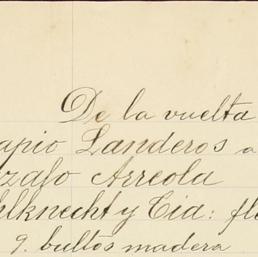 De la vuelta
apio Landeros a
zalo Arreola
hlknecht y Cia: fle
9. bultos madera